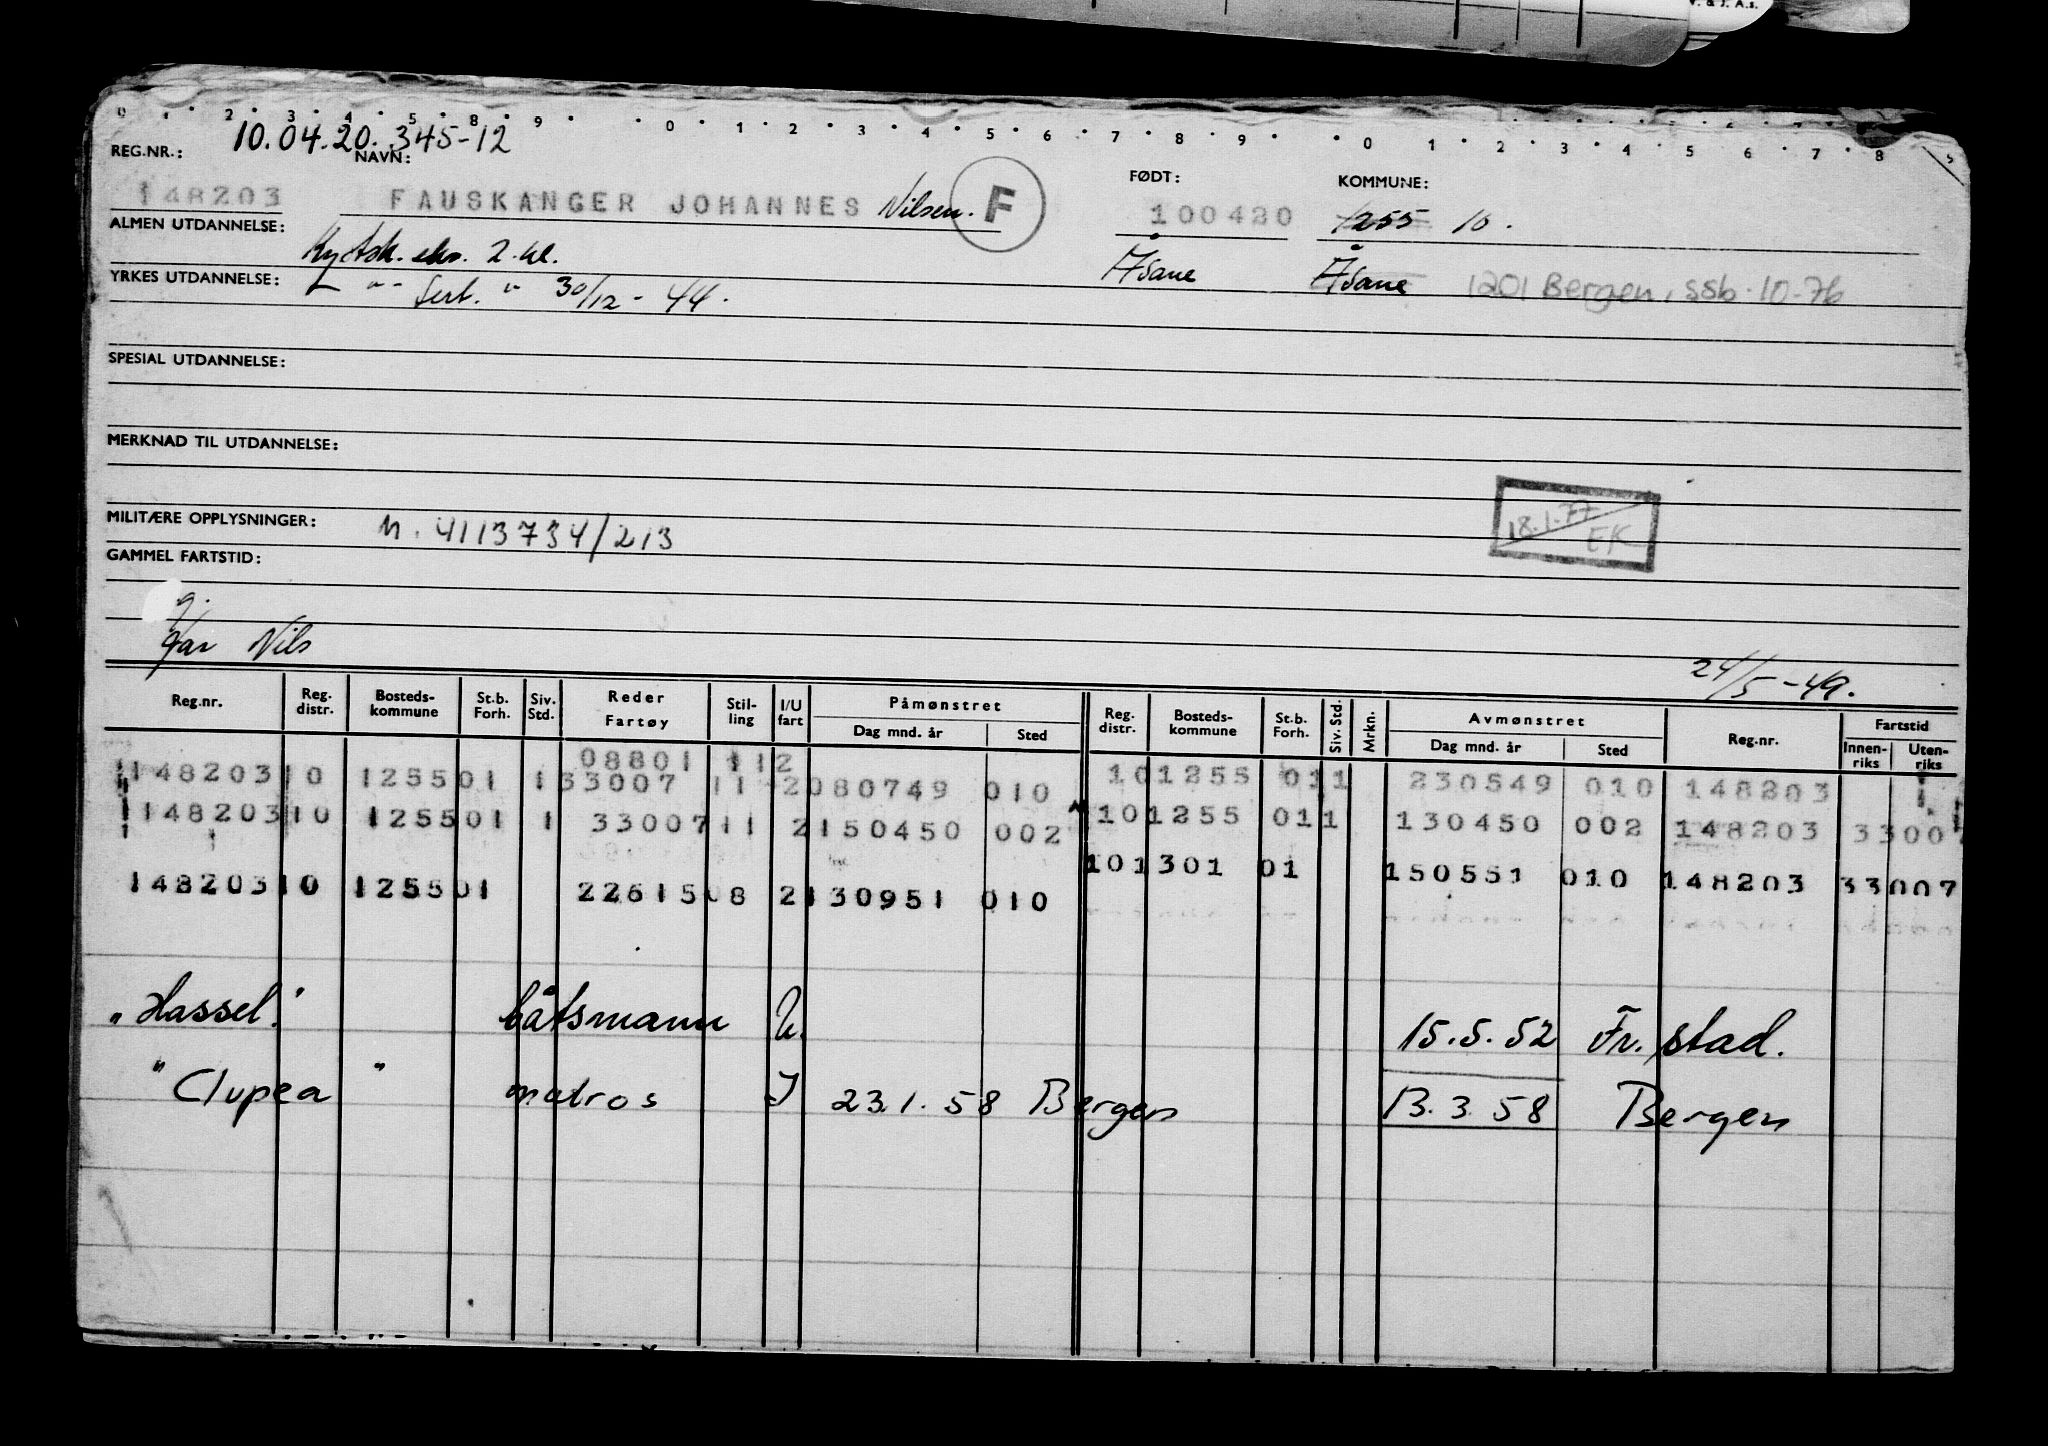 V. & J. A.s.
0 1 2 3 4 5 8 9 0 1 2 3 4 5 6 7 8 9 0 1 2 3 4 5 6 7 8 9
REG.NR.: 10.04.20.345-12
NAVN: FØDT: KOMMUNE:
148203 FAUSKANGER JOHANNES Nilsen. F 100420 1255 10.
ALMEN UTDANNELSE: Kystsk. eks. 2. kl. Åsane Åsane 1201 Bergen, SSb. 10-76
YRKES UTDANNELSE: " - Sert. " 30/12 - 44.
SPESIAL UTDANNELSE:
MERKNAD TIL UTDANNELSE:
18-1-77 EK
MILITÆRE OPPLYSNINGER: M. 4113734/213
GAMMEL FARTSTID:
g.
far Nils
24/5-49.
Reg.nr. Reg. distr. Bosteds-kommune St.b. Forh. Siv. Std. Reder Fartøy Stil-ling I/U fart Påmønstret Dag mnd. år Sted Reg. distr. Bosteds-kommune St.b. Forh. Siv. Std. Mrkn. Avmønstret Dag mnd. år Sted Reg.nr. Fartstid Innen-riks Uten-riks
08801 112
148203 10 1255 01 1 33007 11 2 080749 010 10 1255 01 1 230549 010 148203
148203 10 1255 01 1 33007 11 2 150450 002 10 1255 01 1 130450 002 148203 33007
148203 10 1255 01 22615 08 2 130951 010 10 1301 01 150551 010 148203 33007
"Hassel." båtsmann U. 15.5.52 Fr. stad.
"Clupea" matros I 23.1.58 Bergen 13.3.58 Bergen